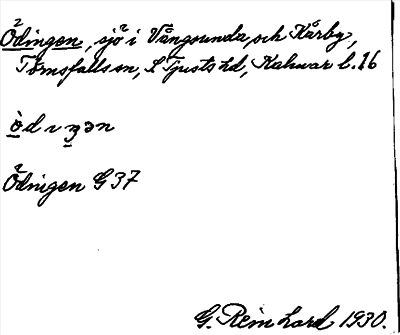 Ödingen, sjö i Vångsunda, och Kårby,
Törnsfalls sn, S Tjusts hd, Kalmar l. 16
Ödingen G 37
G. Reinhard 1930.